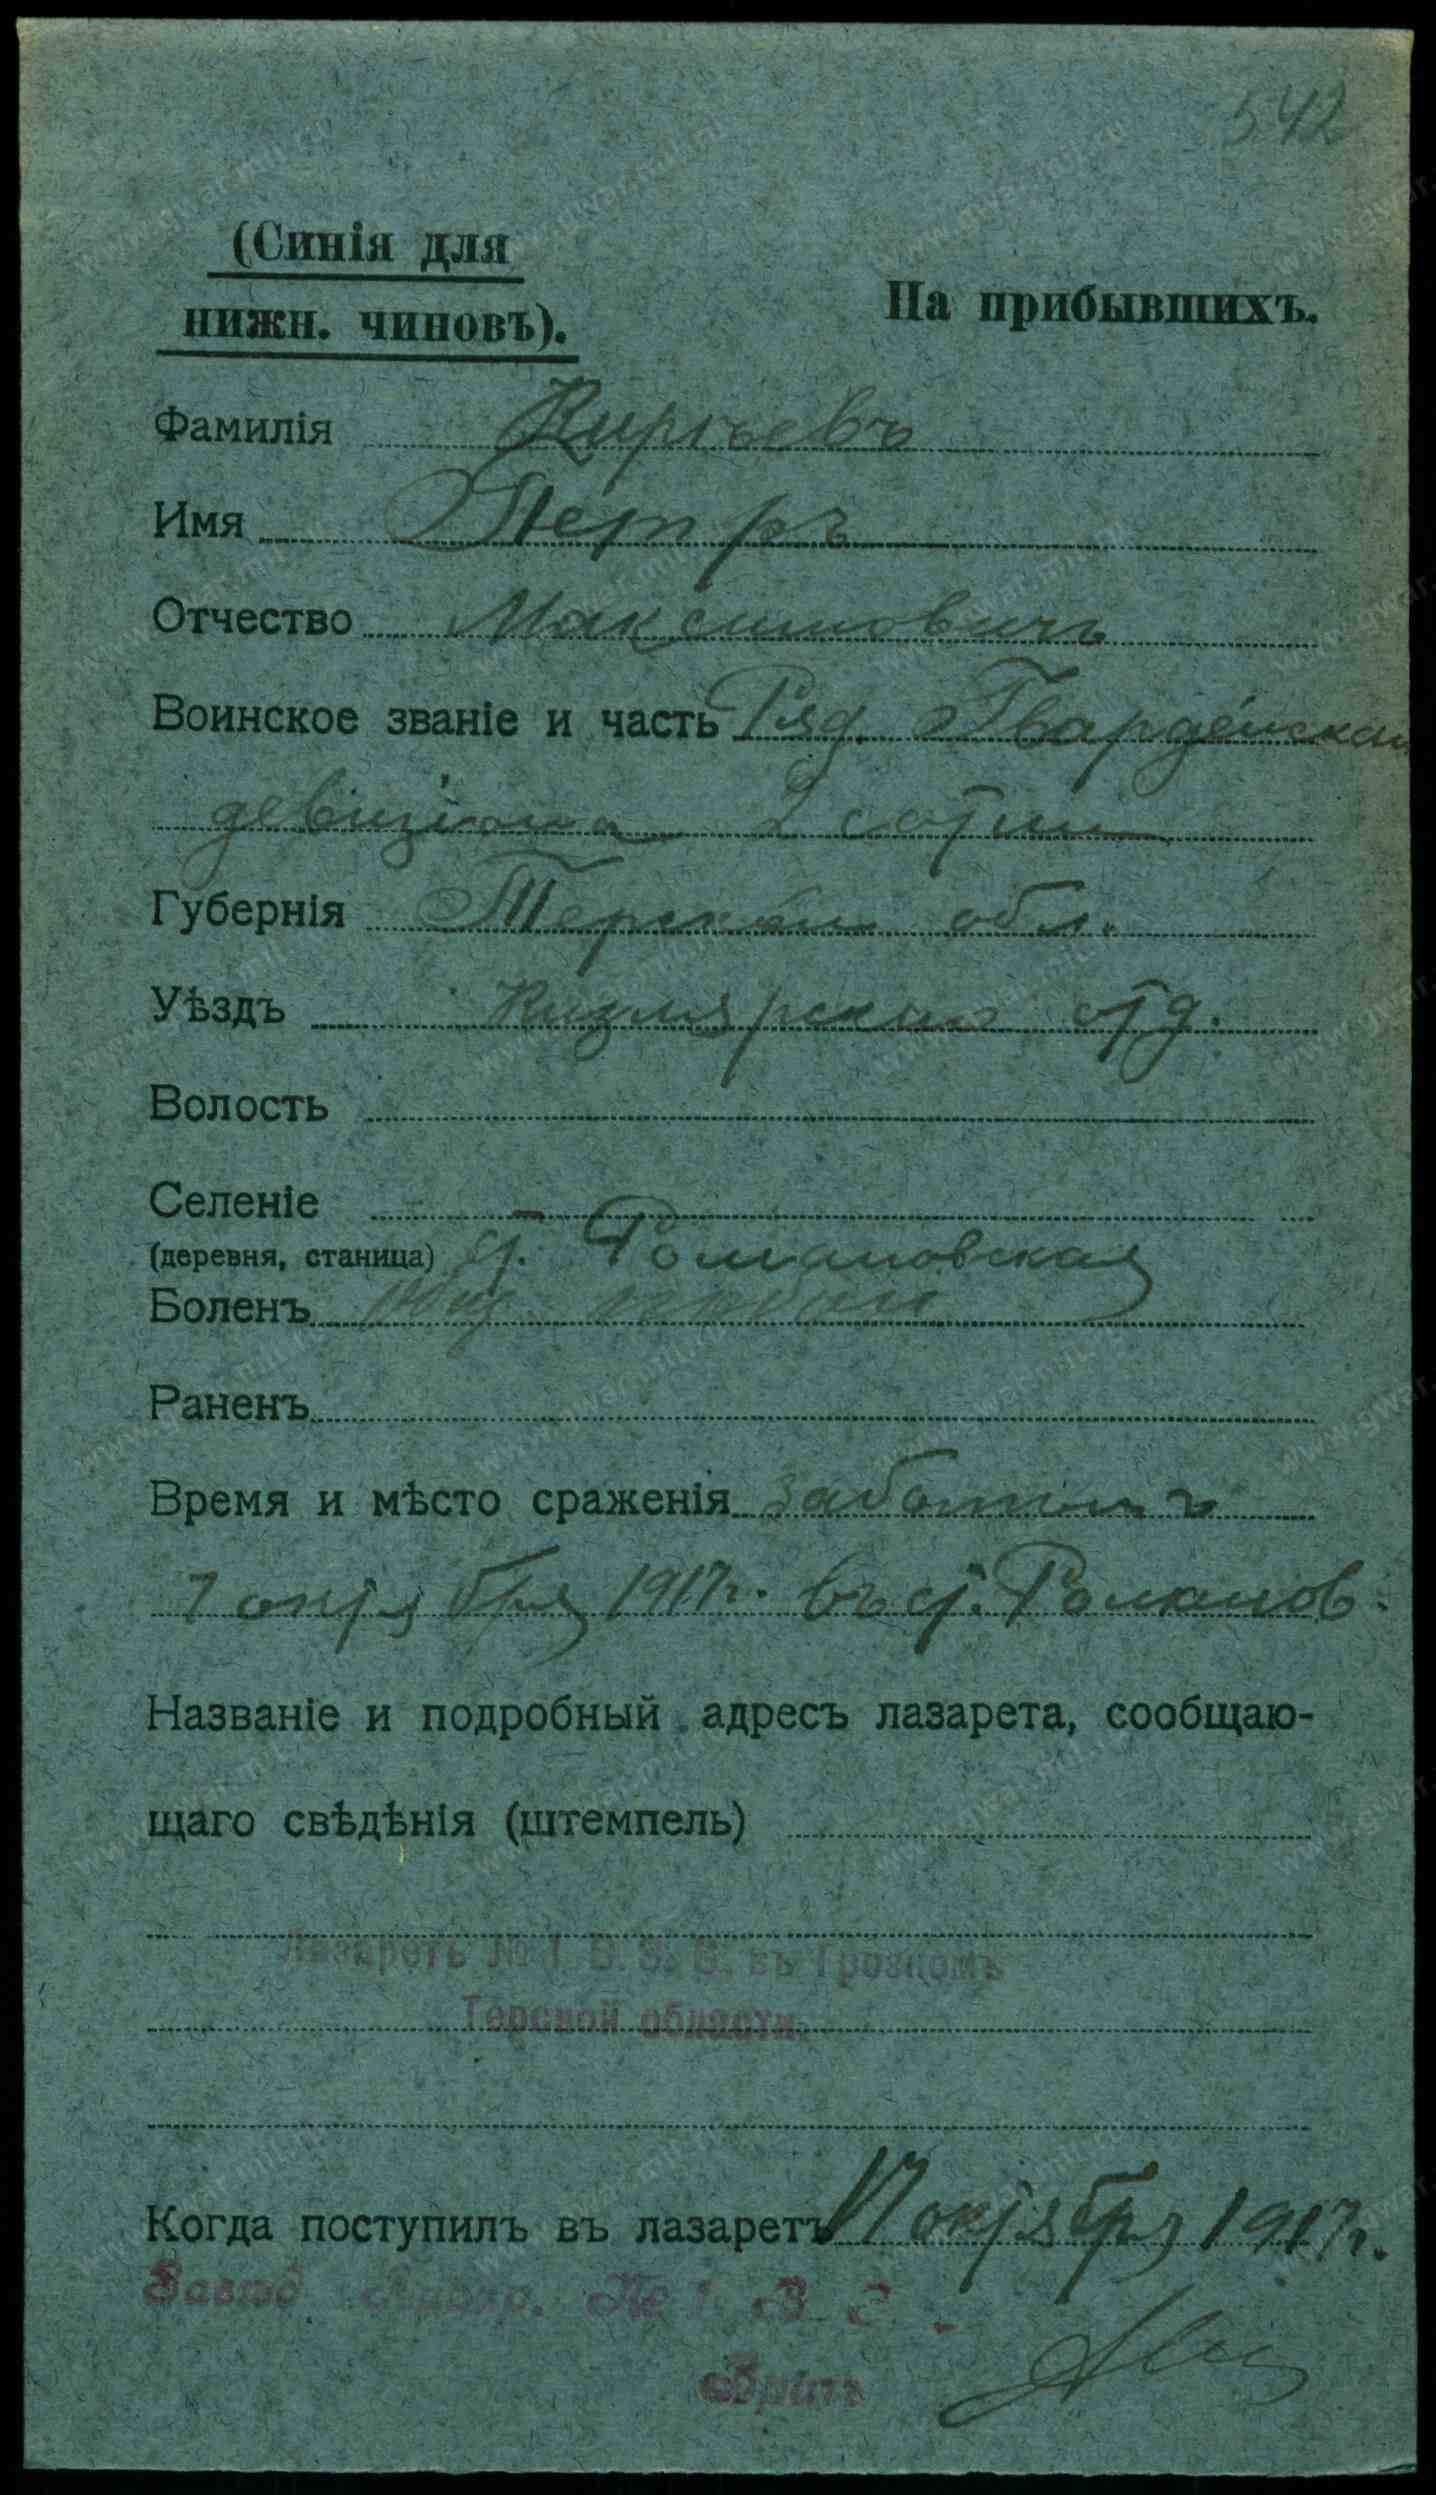 542
(Синія для
нижн. чиновъ).
На прибывшихъ.
Фамилія
Имя Петръ
Отчество Максимовичъ
Воинское званіе и часть Ряд. Гвардейскаго
девизіона 2 сотни
Губернія Терская обл.
Уѣздъ Кизлярскаго отд.
Волость
Селеніе
(деревня, станица) ст. Романовская
Боленъ
Раненъ
Время и мѣсто сраженія
7 октября 1917г. въ ст. Романов.
Названіе и подробный адресъ лазарета, сообщаю-
щаго свѣдѣнія (штемпель)
Лазаретъ № 1 В. З. С. въ Грозномъ
Терской области.
Когда поступилъ въ лазаретъ 17 октября 1917г.
Завѣд. Лазар. № 1 В З
Врачъ